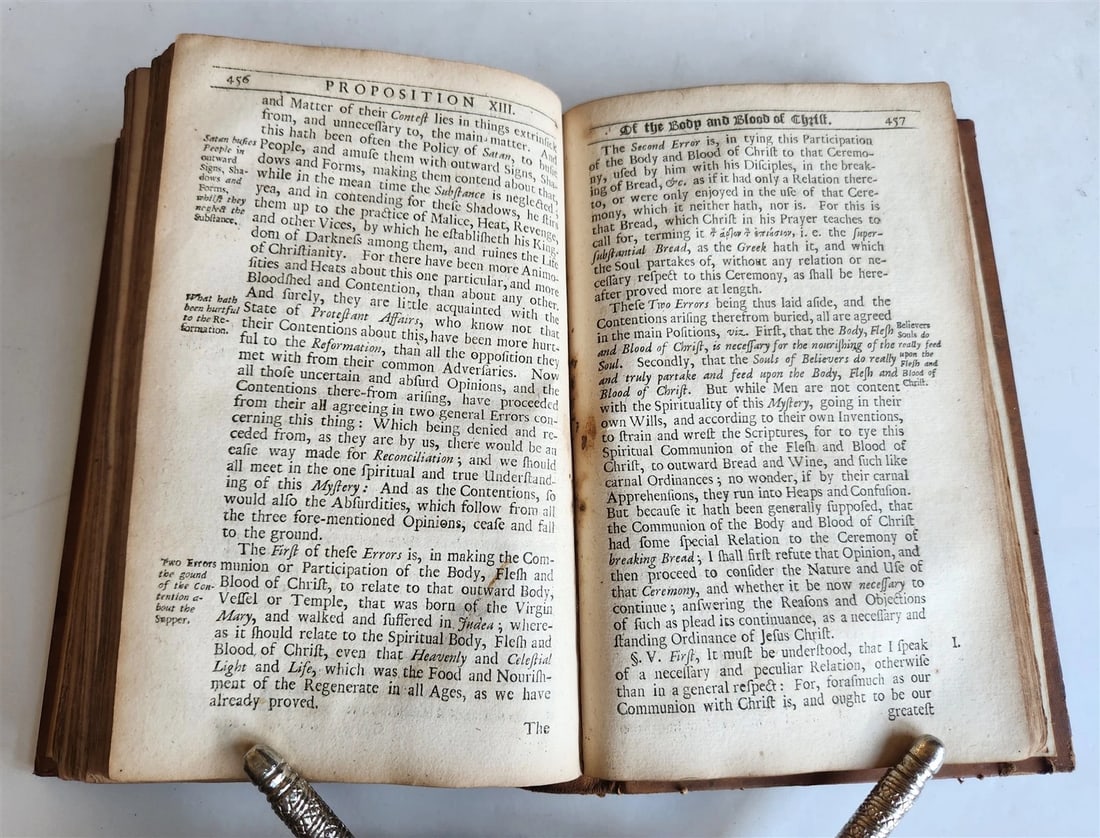 456
PROPOSITION XIII.
and Matter of their Conteſt lies in things extrinſick
from, and unneceſſary to, the main matter. And
this hath been often the Policy of Satan, to buſie
People, and amuſe them with outward Signs, Sha-
dows and Forms, making them contend about that,
while in the mean time the Subſtance is neglected;
yea, and in contending for theſe Shadows, he ſtirs
them up to the practice of Malice, Heat, Revenge,
and other Vices, by which he eſtabliſheth his King-
dom of Darkneſs among them, and ruines the Life
of Chriſtianity. For there have been more Animo-
ſities and Heats about this one particular, and more
Bloodſhed and Contention, than about any other.
And ſurely, they are little acquainted with the
State of Proteſtant Affairs, who know not that
their Contentions about this, have been more hurt-
ful to the Reformation, than all the oppoſition they
met with from their common Adverſaries. Now
all thoſe uncertain and abſurd Opinions, and the
Contentions there-from ariſing, have proceeded
from their all agreeing in two general Errors con-
cerning this thing: Which being denied and re-
ceded from, as they are by us, there would be an
eaſie way made for Reconciliation; and we ſhould
all meet in the one ſpiritual and true Underſtand-
ing of this Myſtery: And as the Contentions, ſo
would alſo the Abſurdities, which follow from all
the three fore-mentioned Opinions, ceaſe and fall
to the ground.
The Firſt of theſe Errors is, in making the Com-
munion or Participation of the Body, Fleſh and
Blood of Chriſt, to relate to that outward Body,
Veſſel or Temple, that was born of the Virgin
Mary, and walked and ſuffered in Judea; where-
as it ſhould relate to the Spiritual Body, Fleſh and
Blood of Chriſt, even that Heavenly and Celeſtial
Light and Life, which was the Food and Nouriſh-
ment of the Regenerate in all Ages, as we have
already proved.
The
Satan buſies
People in
outward
Signs, Sha-
dows and
Forms,
whilſt they
neglect the
Subſtance.
What hath
been hurtful
to the Re-
formation.
Two Errors
the gound
of the Con-
tention a-
bout the
Supper.
Of the Body and Blood of Chriſt.
457
The Second Error is, in tying this Participation
of the Body and Blood of Chriſt to that Ceremo-
ny, uſed by him with his Diſciples, in the break-
ing of Bread, &c. as if it had only a Relation there-
to, or were only enjoyed in the uſe of that Cere-
mony, which it neither hath, nor is. For this is
that Bread, which Chriſt in his Prayer teaches to
call for, terming it i. e. the ſuper-
ſubſtantial Bread, as the Greek hath it, and which
the Soul partakes of, without any relation or ne-
ceſſary reſpect to this Ceremony, as ſhall be here-
after proved more at length.
Theſe Two Errors being thus laid aſide, and the
Contentions ariſing therefrom buried, all are agreed
in the main Poſitions, viz. Firſt, that the Body, Fleſh
and Blood of Chriſt, is neceſſary for the nouriſhing of the
Soul. Secondly, that the Souls of Believers do really
and truly partake and feed upon the Body, Fleſh and
Blood of Chriſt. But while Men are not content
with the Spirituality of this Myſtery, going in their
own Wills, and according to their own Inventions,
to ſtrain and wreſt the Scriptures, for to tye this
Spiritual Communion of the Fleſh and Blood of
Chriſt, to outward Bread and Wine, and ſuch like
carnal Ordinances; no wonder, if by their carnal
Apprehenſions, they run into Heaps and Confuſion.
But becauſe it hath been generally ſuppoſed, that
the Communion of the Body and Blood of Chriſt
had ſome ſpecial Relation to the Ceremony of
breaking Bread; I ſhall firſt refute that Opinion, and
then proceed to conſider the Nature and Uſe of
that Ceremony, and whether it be now neceſſary to
continue; anſwering the Reaſons and Objections
of ſuch as plead its continuance, as a neceſſary and
ſtanding Ordinance of Jeſus Chriſt.
§. V. Firſt, It muſt be underſtood, that I ſpeak
of a neceſſary and peculiar Relation, otherwiſe
than in a general reſpect: For, foraſmuch as our
Communion with Chriſt is, and ought to be our
greateſt
Believers
Souls do
really feed
upon the
Fleſh and
Blood of
Chriſt.
I.